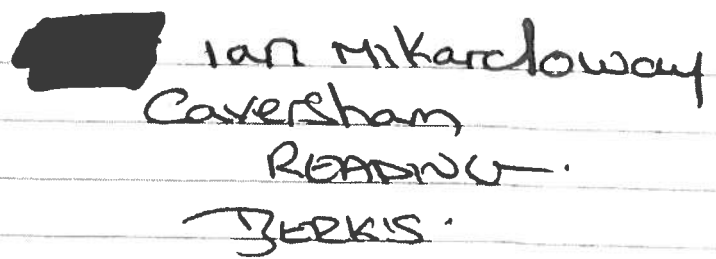 Ian Mikardoway
Caversham
READING.
BERKS.